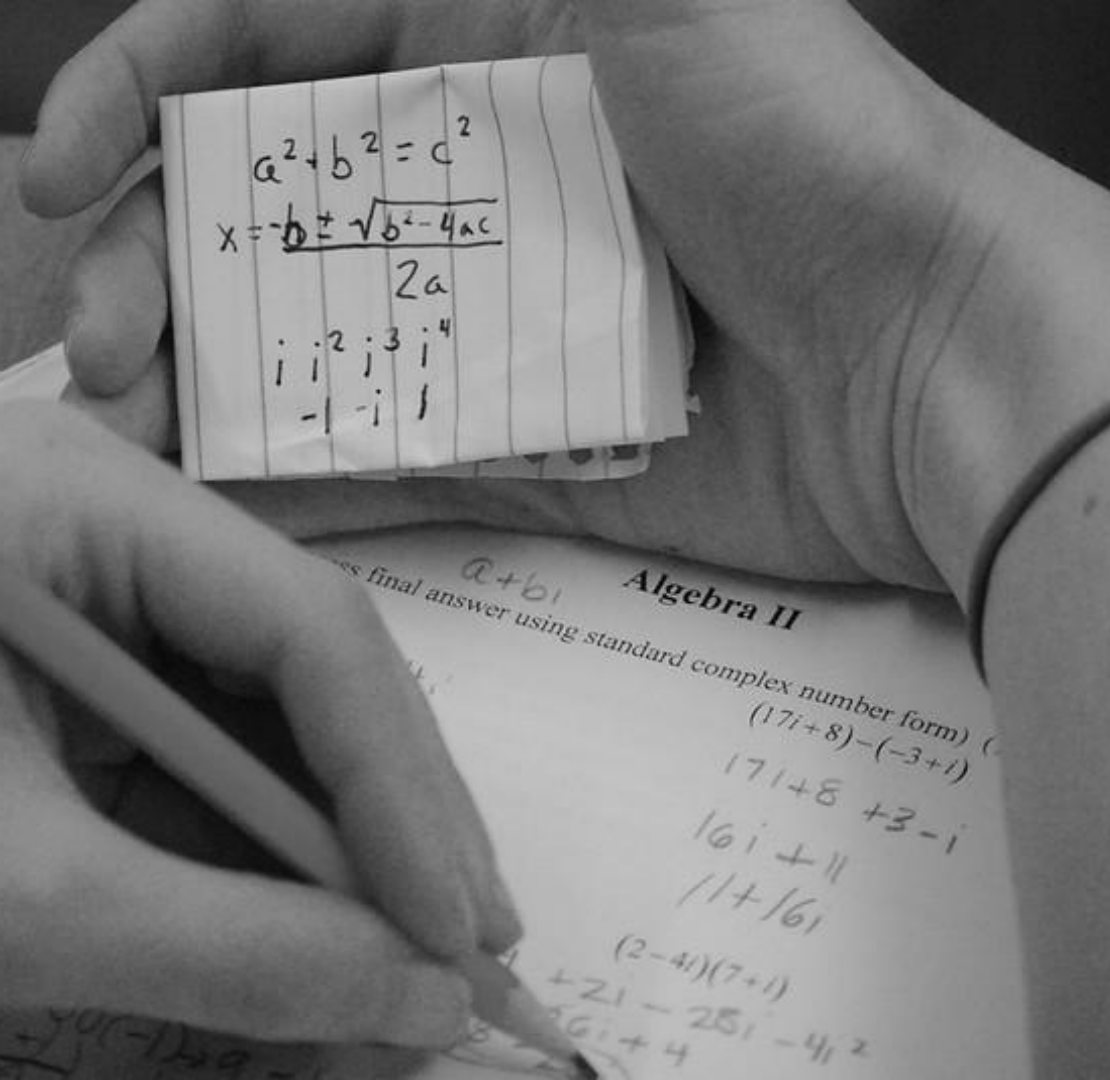 a² + b² = c²
x = -b ± √b² - 4ac
2a
i i² i³ i⁴
-1 -i 1
a+bi
Algebra II
final answer using standard complex number form) (
(17i+8)-(-3+i)
17i+8 +3-i
16i+11
11+16i
(2-4i)(7+i)
+2i - 28i - 4i²
6i + 4